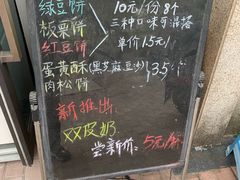 绿豆饼 10元/份8个
板栗饼 三种口味可混搭
红豆饼 单价1.5元/
蛋黄酥(黑芝麻豆沙)3.5/个
肉松饼
新推出
双皮奶
尝新价: 5元/份